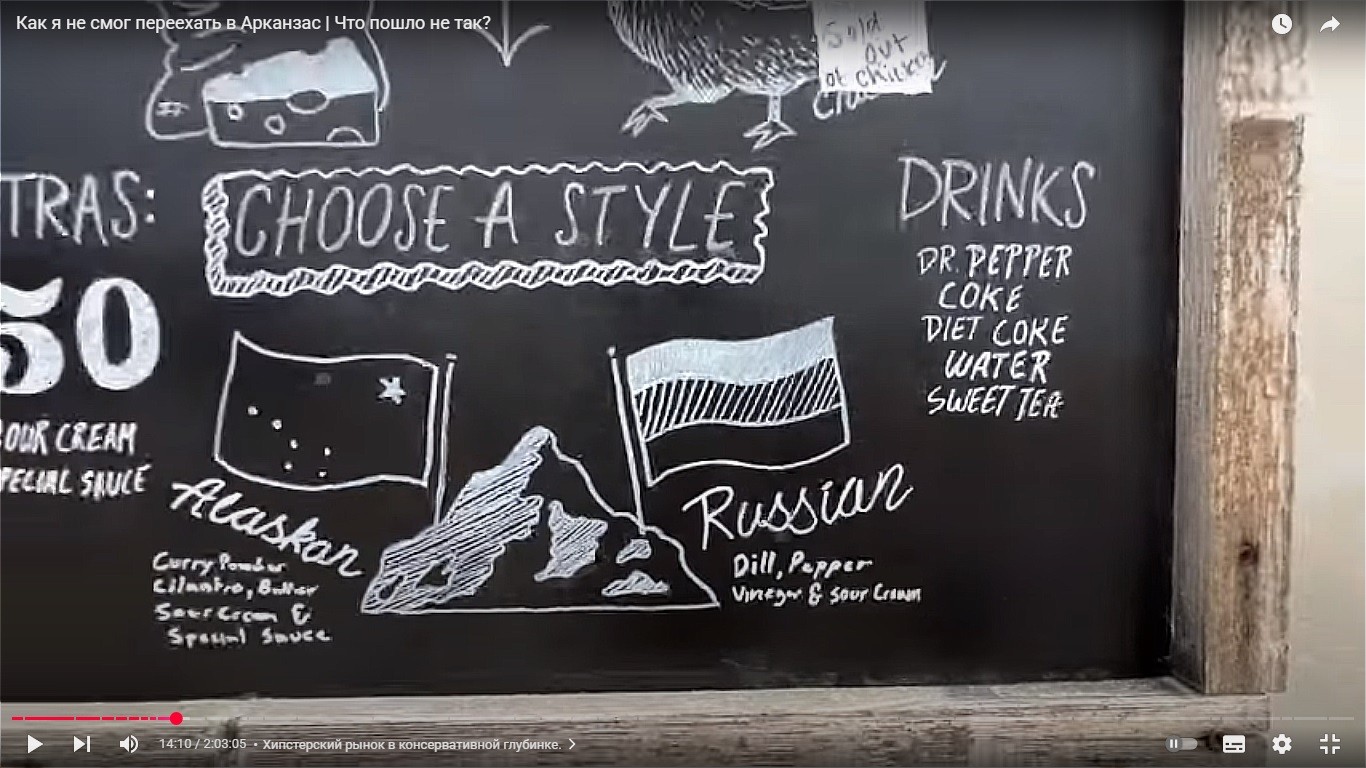 Как я не смог переехать в Арканзас | Что пошло не так?
Sold
out
of chicken
TRAS:
50
OUR CREAM
PECIAL SAUCE
CHOOSE A STYLE
Alaskan
Curry Powder
Cilantro, Butter
Sour Cream &
Special Sauce
Russian
Dill, Pepper
Vinegar & Sour Cream
DRINKS
DR. PEPPER
COKE
DIET COKE
WATER
SWEET TEA
14:10 / 2:03:05 • Хипстерский рынок в консервативной глубинке.